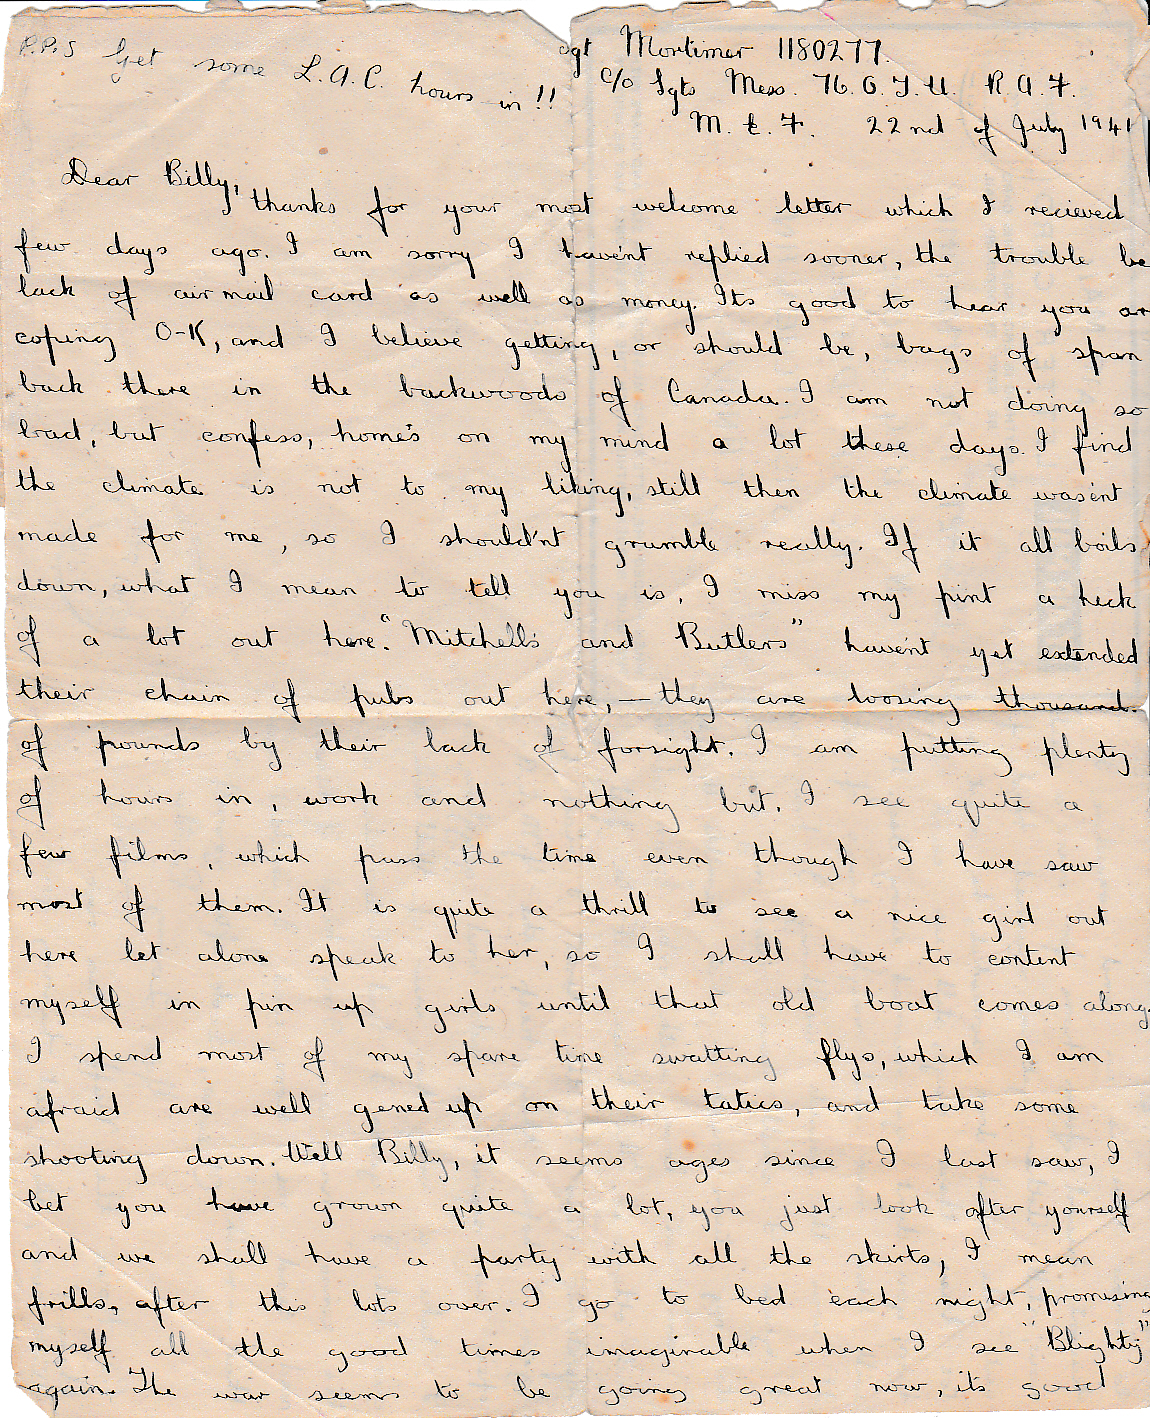 P.P.S Get some L.A.C. hours in!!
Sgt Mortimer 1180277.
C/o Sgts Mess. 76. O.T.U. R.A.F.
M.E.F. 22nd of July 1941
Dear Billy,
thanks for your most welcome letter which I recieved
few days ago. I am sorry I haven't replied sooner, the trouble be
lack of air mail card as well as money. Its good to hear you ar
coping O-K, and I believe getting, or should be, bags of span
back there in the backwoods of Canada. I am not doing so
bad, but confess, home's on my mind a lot these days. I find
the climate is not to my liking, still then the climate wasen't
made for me, so I should'nt grumble really. If it all boils
down, what I mean to tell you is, I miss my pint a heck
of a lot out here. "Mitchell's and Butlers" haven't yet extended
their chain of pubs out here, — they are loosing thousand.
of pounds by their lack of forsight. I am putting plenty
of hours in, work and nothing but. I see quite a
few films, which pass the time even though I have saw
most of them. It is quite a thrill to see a nice girl out
here let alone speak to her, so I shall have to content
myself in pin up girls until that old boat comes along.
I spend most of my spare time swatting flys, which I am
afraid are well gened up on their tatics, and take some
shooting down. Well Billy, it seems ages since I last saw, I
bet you have grown quite a lot, you just look after yourself
and we shall have a party with all the skirts, I mean
frills, after this lots over. I go to bed each night, promising
myself all the good times imaginable when I see "Blighty"
again. The war seems to be going great now, its good